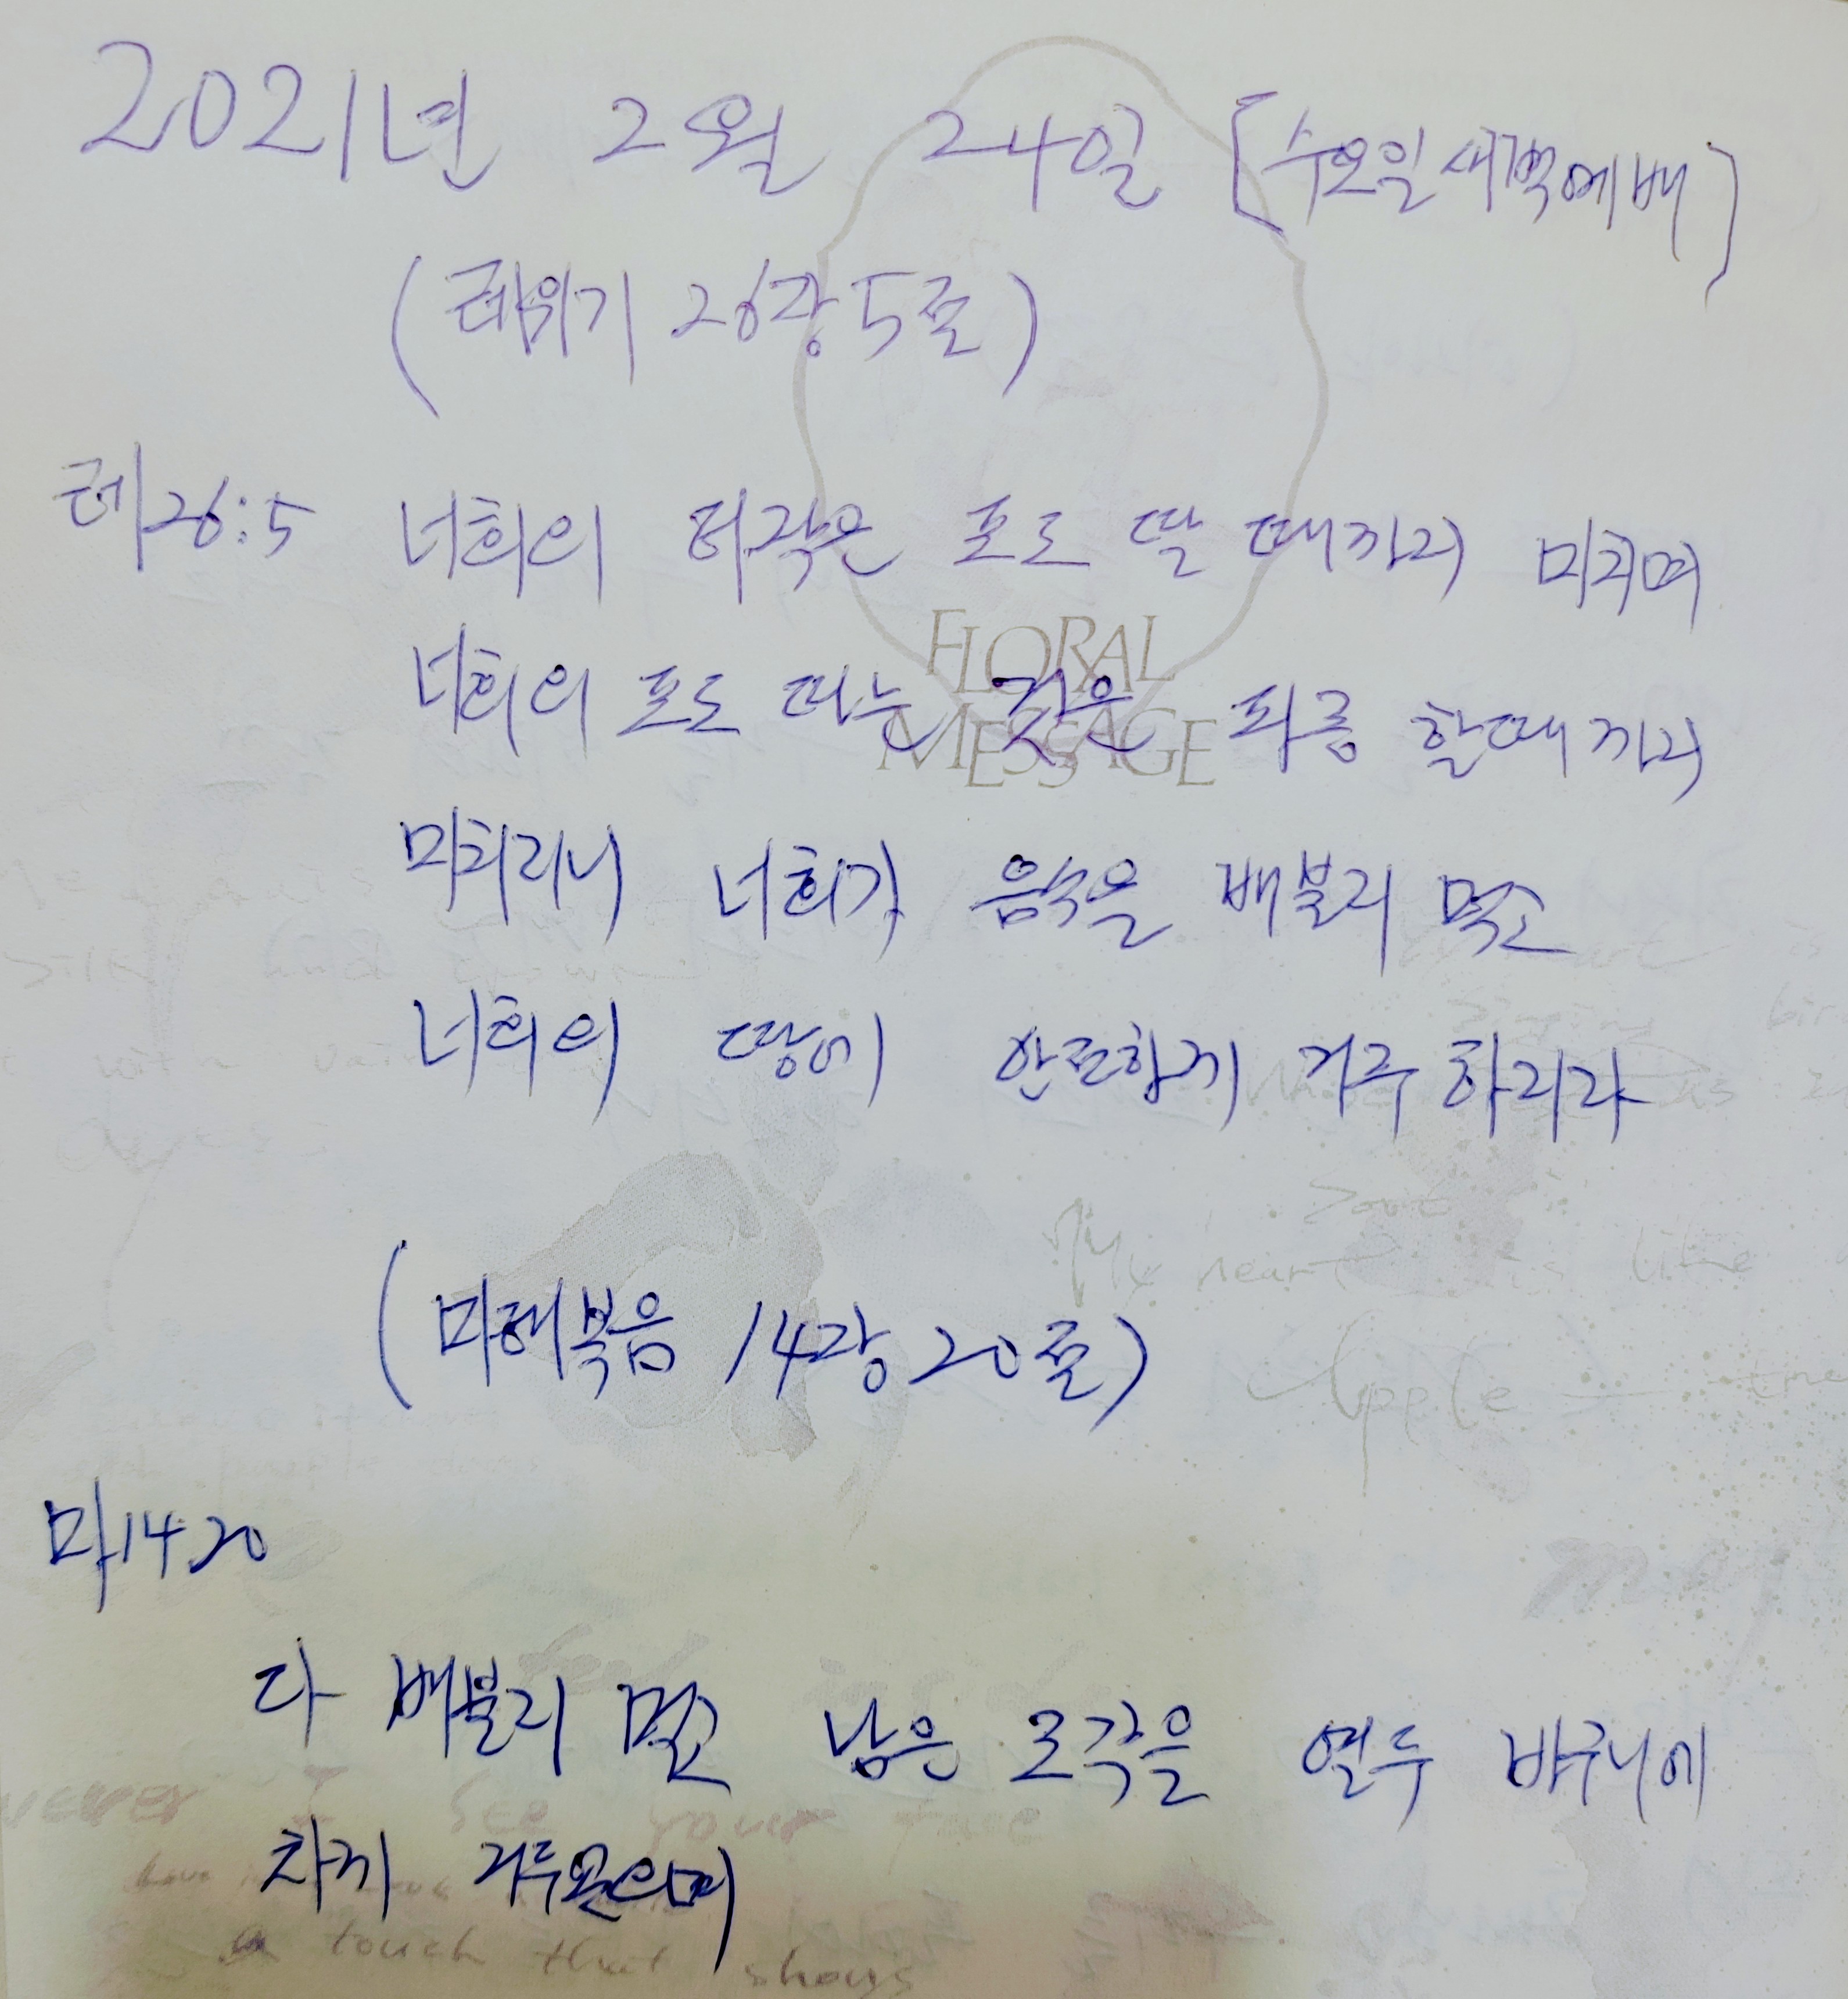 2021년 2월 24일 [수요일새벽예배]
(레위기 26장 5절)
레26:5 너희의 타작은 포도 딸 때까지 미치며
너희의 포도 따는 것은 파종 할때까지
미치리니 너희가 음식을 배불리 먹고
FLORAL
MESSAGE
너희의 땅에 안전하게 거주 하리라
(마태복음 14장 20절)
My heart is like
Apple
마14:20
다 배불리 먹고 남은 조각을 열두 바구니에
I see your face
차게 거두었으며
a touch that shows